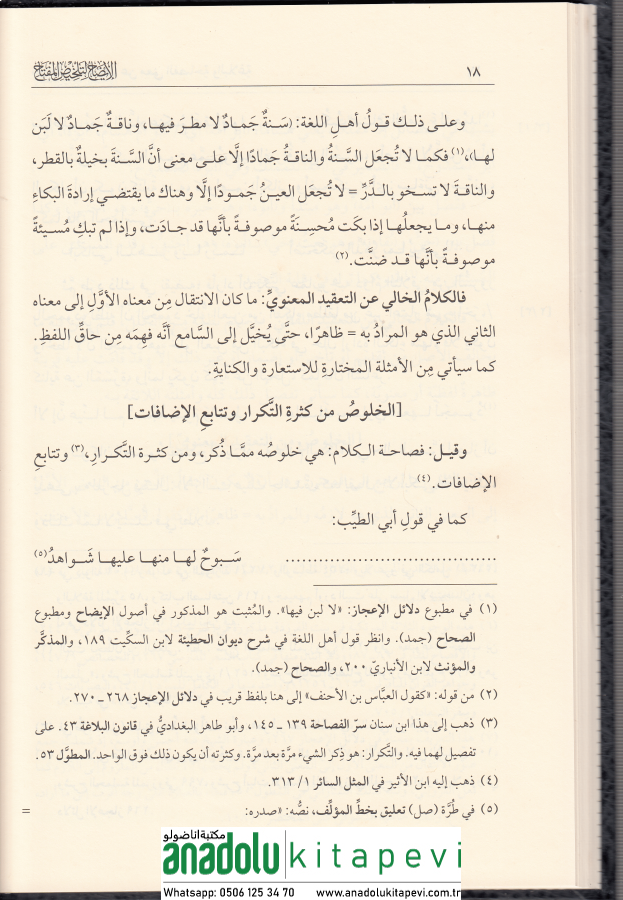 ١٨ الإيضاح لتلخيص المفتاح
وعلى ذلك قولُ أهلِ اللغة: (سَنةٌ جَمادٌ لا مطرَ فيها، وناقةٌ جَمادٌ لا لَبَن
لها)،(١) فكما لا تُجعَل السَّنةُ والناقةُ جَمادًا إلَّا على معنى أنَّ السَّنةَ بخيلةٌ بالقطر،
والناقةَ لا تسخو بالدَّرِّ = لا تُجعَل العينُ جَمودًا إلَّا وهناك ما يقتضي إرادةَ البكاءِ
منها، وما يجعلُها إذا بكَت مُحسِنَةً موصوفةً بأنَّها قد جادَت، وإذا لم تبكِ مُسيئةً
موصوفةً بأنَّها قد ضنَّت.(٢)
فالكلامُ الخالي عن التعقيد المعنويِّ: ما كان الانتقال مِن معناه الأوَّلِ إلى معناه
الثاني الذي هو المرادُ به = ظاهرًا، حتَّى يُخيَّل إلى السَّامع أنَّه فهِمَه مِن حاقِّ اللفظِ.
كما سيأتي مِن الأمثلة المختارةِ للاستعارة والكنايةِ.
[الخلوصُ من كثرةِ التَّكرار وتتابعِ الإضافات]
وقيل: فصاحة الكلام: هي خلوصُه ممَّا ذُكر، ومن كثرة التَّكرارِ،(٣) وتتابعِ
الإضافات.(٤)
كما في قولِ أبي الطيِّب:
..................................... سَبوحٌ لها منها عليها شَواهدُ(٥)
(١) في مطبوع دلائل الإعجاز: «لا لبن فيها». والمُثبت هو المذكور في أصول الإيضاح ومطبوع
الصحاح (جمد). وانظر قول أهل اللغة في شرح ديوان الحطيئة لابن السكّيت ١٨٩، والمذكَّر
والمؤنث لابن الأنباريّ ٢٠٠، والصحاح (جمد).
(٢) من قوله: «كقول العبَّاس بن الأحنف» إلى هنا بلفظ قريب في دلائل الإعجاز ٢٦٨ ـ ٢٧٠.
(٣) ذهب إلى هذا ابن سنان سرّ الفصاحة ١٣٩ ـ ١٤٥، وأبو طاهر البغداديُّ في قانون البلاغة ٤٣. على
تفصيل لهما فيه. والتَّكرار: هو ذِكر الشيء مرَّة بعد مرَّة. وكثرته أن يكون ذلك فوق الواحد. المطوَّل ٥٣.
(٤) ذهب إليه ابن الأثير في المثل السائر ١/ ٣١٣.
(٥) في طُرَّة (صل) تعليق بخطِّ المؤلِّف، نصُّه: «صدره: =
مكتبة اناضولو
anadolu kitapevi
Whatsapp: 0506 125 34 70 www.anadolukitapevi.com.tr